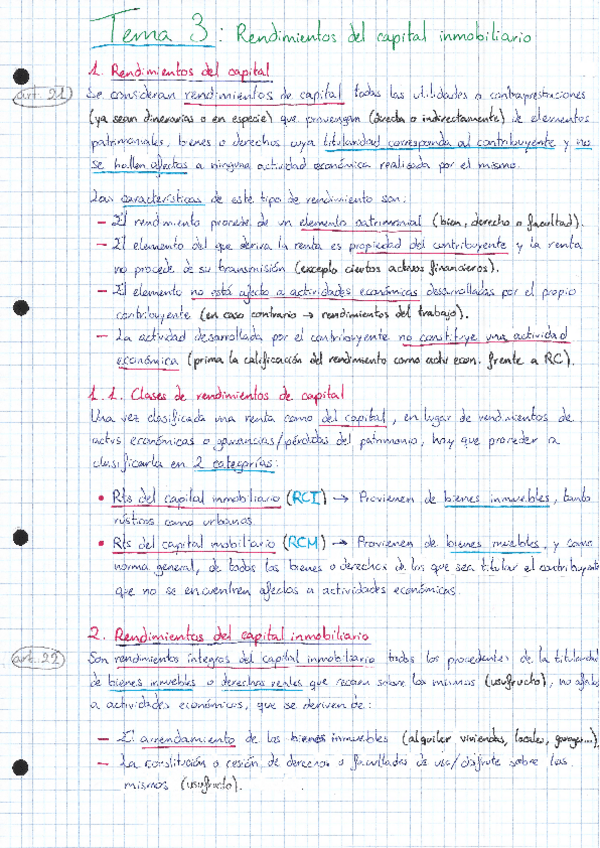 Tema 3: Rendimientos del capital inmobiliario
1. Rendimientos del capital
art. 21
Se consideran rendimientos de capital todas las utilidades o contraprestaciones
(ya sean dinerarias o en especie) que provengan (directa o indirectamente) de elementos
patrimoniales, bienes o derechos cuya titularidad corresponda al contribuyente y no
se hallen afectos a ninguna actividad económica realizada por el mismo.
Las características de este tipo de rendimiento son:
- El rendimiento procede de un elemento patrimonial (bien, derecho o facultad).
- El elemento del que deriva la renta es propiedad del contribuyente y la renta
no procede de su transmisión (excepto ciertos activos financieros).
- El elemento no está afecto a actividades económicas desarrolladas por el propio
contribuyente (en caso contrario → rendimientos del trabajo).
- La actividad desarrollada por el contribuyente no constituye una actividad
económica (prima la calificación del rendimiento como actv econ. frente a RC).
1.1. Clases de rendimientos de capital
Una vez clasificada una renta como del capital, en lugar de rendimientos de
actvs económicas o ganancias/pérdidas del patrimonio, hay que proceder a
clasificarla en 2 categorías:
• Rts del capital inmobiliario (RCI) → Provienen de bienes inmuebles, tanto
rústicos como urbanos.
• Rts del capital mobiliario (RCM) → Provienen de bienes muebles, y como
norma general, de todos los bienes o derechos de los que sea titular el contribuyente
que no se encuentren afectos a actividades económicas.
2. Rendimientos del capital inmobiliario
art. 22
Son rendimientos íntegros del capital inmobiliario todos los procedentes de la titularidad
de bienes inmuebles o derechos reales que recaen sobre los mismos (usufructo), no afectos
a actividades económicas, que se deriven de:
- El arrendamiento de los bienes inmuebles (alquilar viviendas, locales, garajes...)
- La constitución o cesión de derechos o facultades de uso/disfrute sobre los
mismos (usufructo).